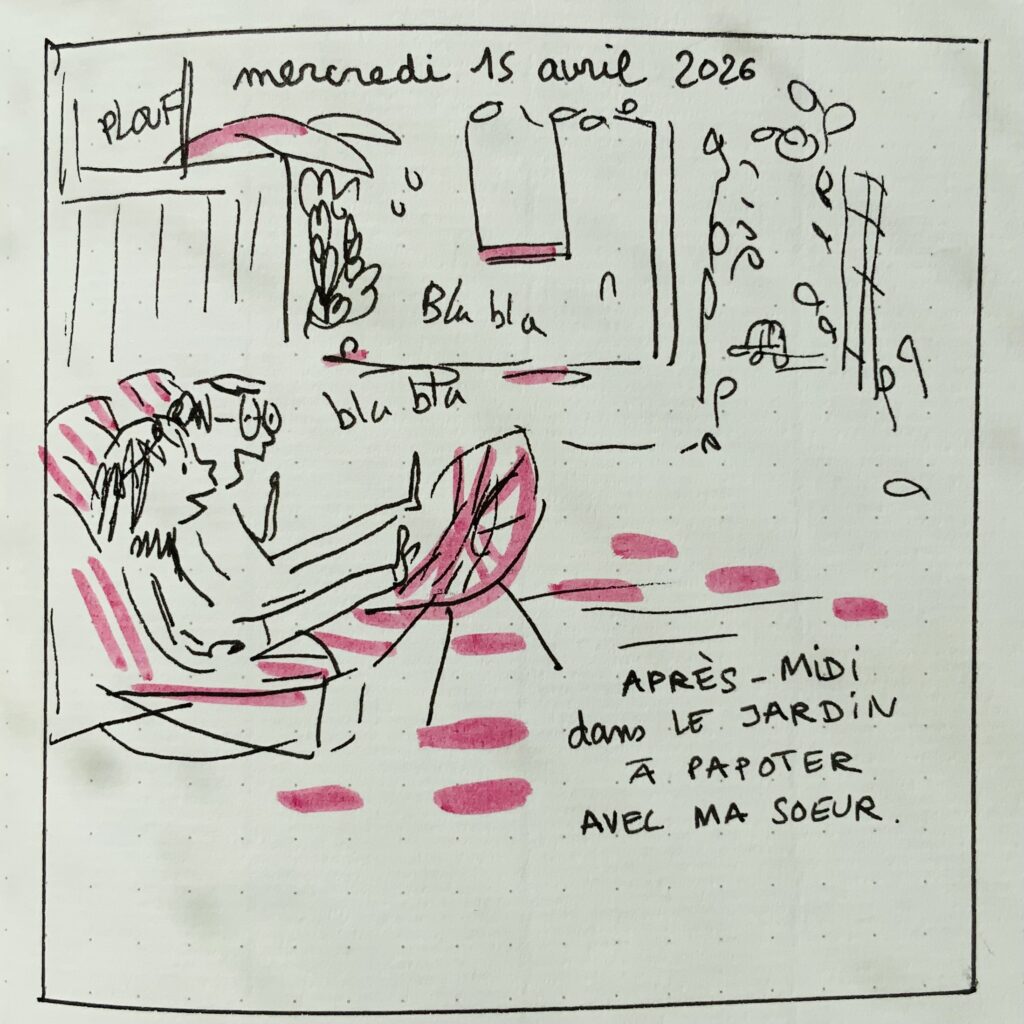 mercredi 15 avril 2026
PLOUF
Bla bla
bla bla
APRÈS-MIDI
dans LE JARDIN
À PAPOTER
AVEC MA SOEUR.